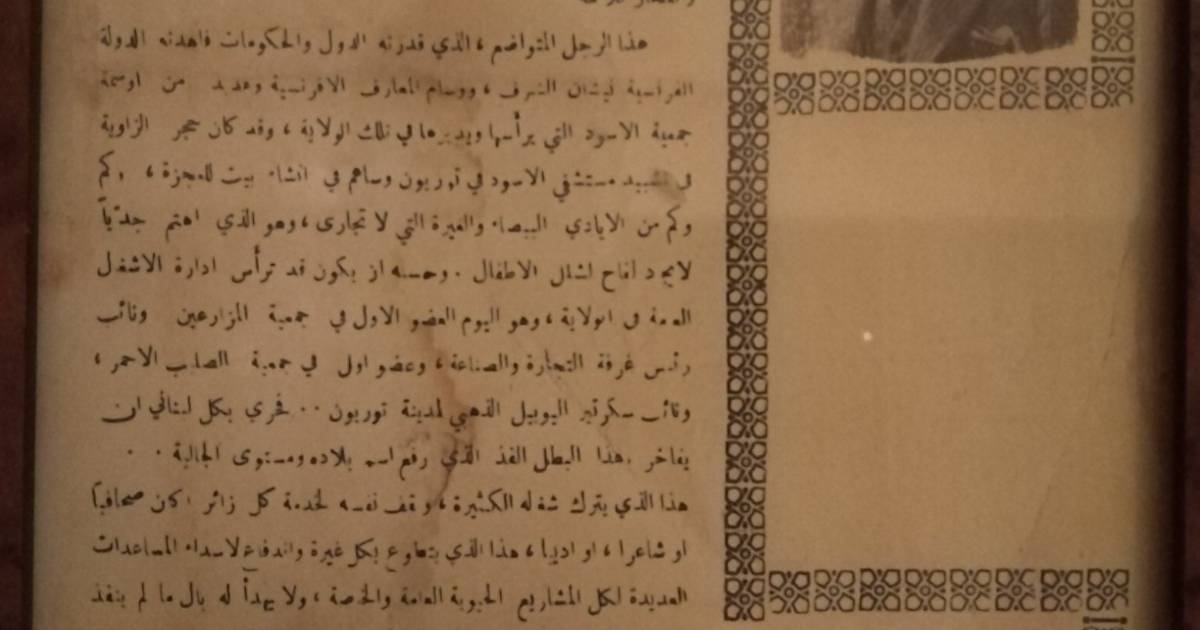 هذا الرجل المتواضع ، الذي قدرته الدول والحكومات فاهدته الدولة
الفرنسية نيشان الشرف ، ووسام المعارف الافرنسية وعديد من اوسمة
جمعية الاسود التي يرأسها ويديرها في تلك الولاية ، وقد كان حجر الزاوية
في تشييد مستشفى الاسود في توريون وساهم في انشاء بيت للعجزة ، وكم
وكم من الايادي البيضاء والغيرة التي لا تجارى ، وهو الذي اهتم جدّياً
لايجاد لقاح لشلل الاطفال . وحسبه ان يكون قد ترأس ادارة الاشغال
العامة في الولاية ، وهو اليوم العضو الاول في جمعية المزارعين ونائب
رئيس غرفة التجارة والصناعة ، وعضو اول في جمعية الصليب الاحمر ،
ونائب سكرتير اليوبيل الذهبي لمدينة توريون ٠٠ فحري بكل لبناني ان
يفاخر بهذا البطل الفذ الذي رفع اسم بلاده ومستوى الجالية ٠ ٠
هذا الذي يترك شغله الكثيرة ، ويقف نفسه لخدمة كل زائر اكان صحافياً
او شاعرا ، او اديبا ، هذا الذي يتطوع بكل غيرة واندفاع لاسداء المساعدات
العديدة لكل المشاريع الحيوية العامة والخاصة ، ولا يهدأ له بال ما لم ينفذ